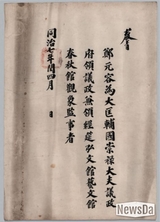 教旨
鄭元容爲大匡輔國崇祿大夫議政
府領議政兼領經筵弘文館藝文館
春秋館觀象監事者
同治七年閏四月 日
NewsDa